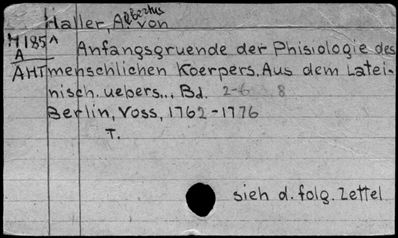 Haller, Albertus von
M185
A
AHT
Anfangsgruende der Phisiologie des
menschlichen Koerpers. Aus dem Latei-
nisch. uebers... Bd. 2-6 8
Berlin, Voss, 1762-1776
T.
sieh d. folg. Zettel